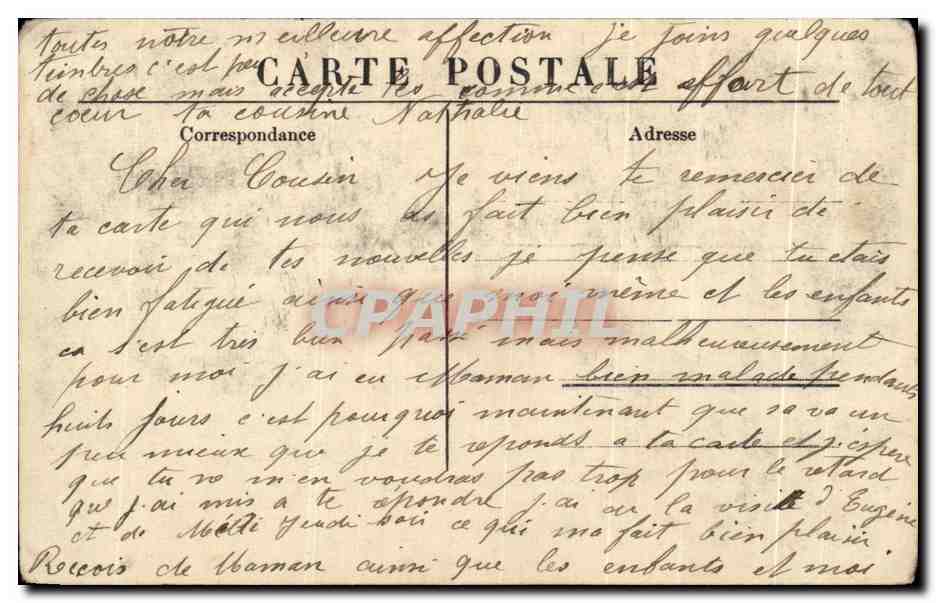 toutes notre meilleure affection je joins quelques
timbres c'est peu
CARTE POSTALE
de chose mais accepte les comme c'est offert de tout
cœur ta cousine Nathalie
Correspondance
Adresse
Cher Cousin Je viens te remercier de
ta carte qui nous as fait bien plaisir de
recevoir de tes nouvelles je pense que tu etais
bien fatigué ainsi que moi même et les enfants
ca s'est très bien passé mais malheureusement
pour moi j'ai eu Maman bien malade pendants
huits jours c'est pourquoi maintenant que sa va un
peu mieux que je te reponds a ta carte et j'espère
que tu ne m'en voudras pas trop pour le retard
que j'ai mis a te repondre j'ai eu la visite d'Eugene
et de jeudi soir ce qui ma fait bien plaisir
Recois de Maman ainsi que les enfants et moi
CPAPHIL